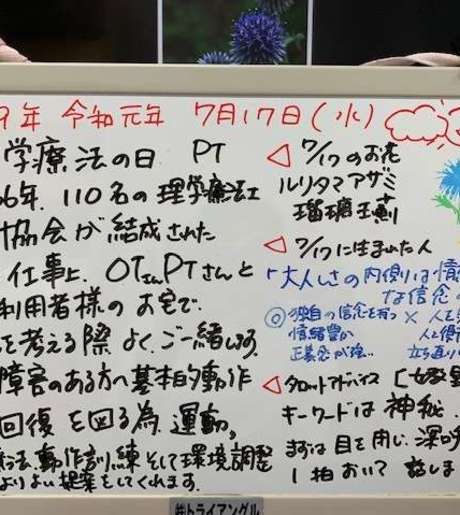 9年 令和元年 7月17日(水)
学療法の日 PT
66年、110名の理学療法士
協会が結成された
仕事上、OTさんPTさんと
利用者様のお宅で、
を考える際よくご一緒します。
障害のある方へ基本的動作
回復を図る為、運動、
法、動作訓練そして環境調整
よりよい提案をしてくれます。
◁ 7/17のお花
ルリタマアザミ
瑠璃玉薊
◁ 7/17に生まれた人
「大人しさの内側は情
な信念の
◎ 独自の信念を持つ × 人を
情緒豊か 人と
正義感が強い 立ち直り
◁ タロットアドバイス 【女教
キーワードは 神秘
まずは目を閉じ、深呼
1拍おいて 話しま
#トライアングル